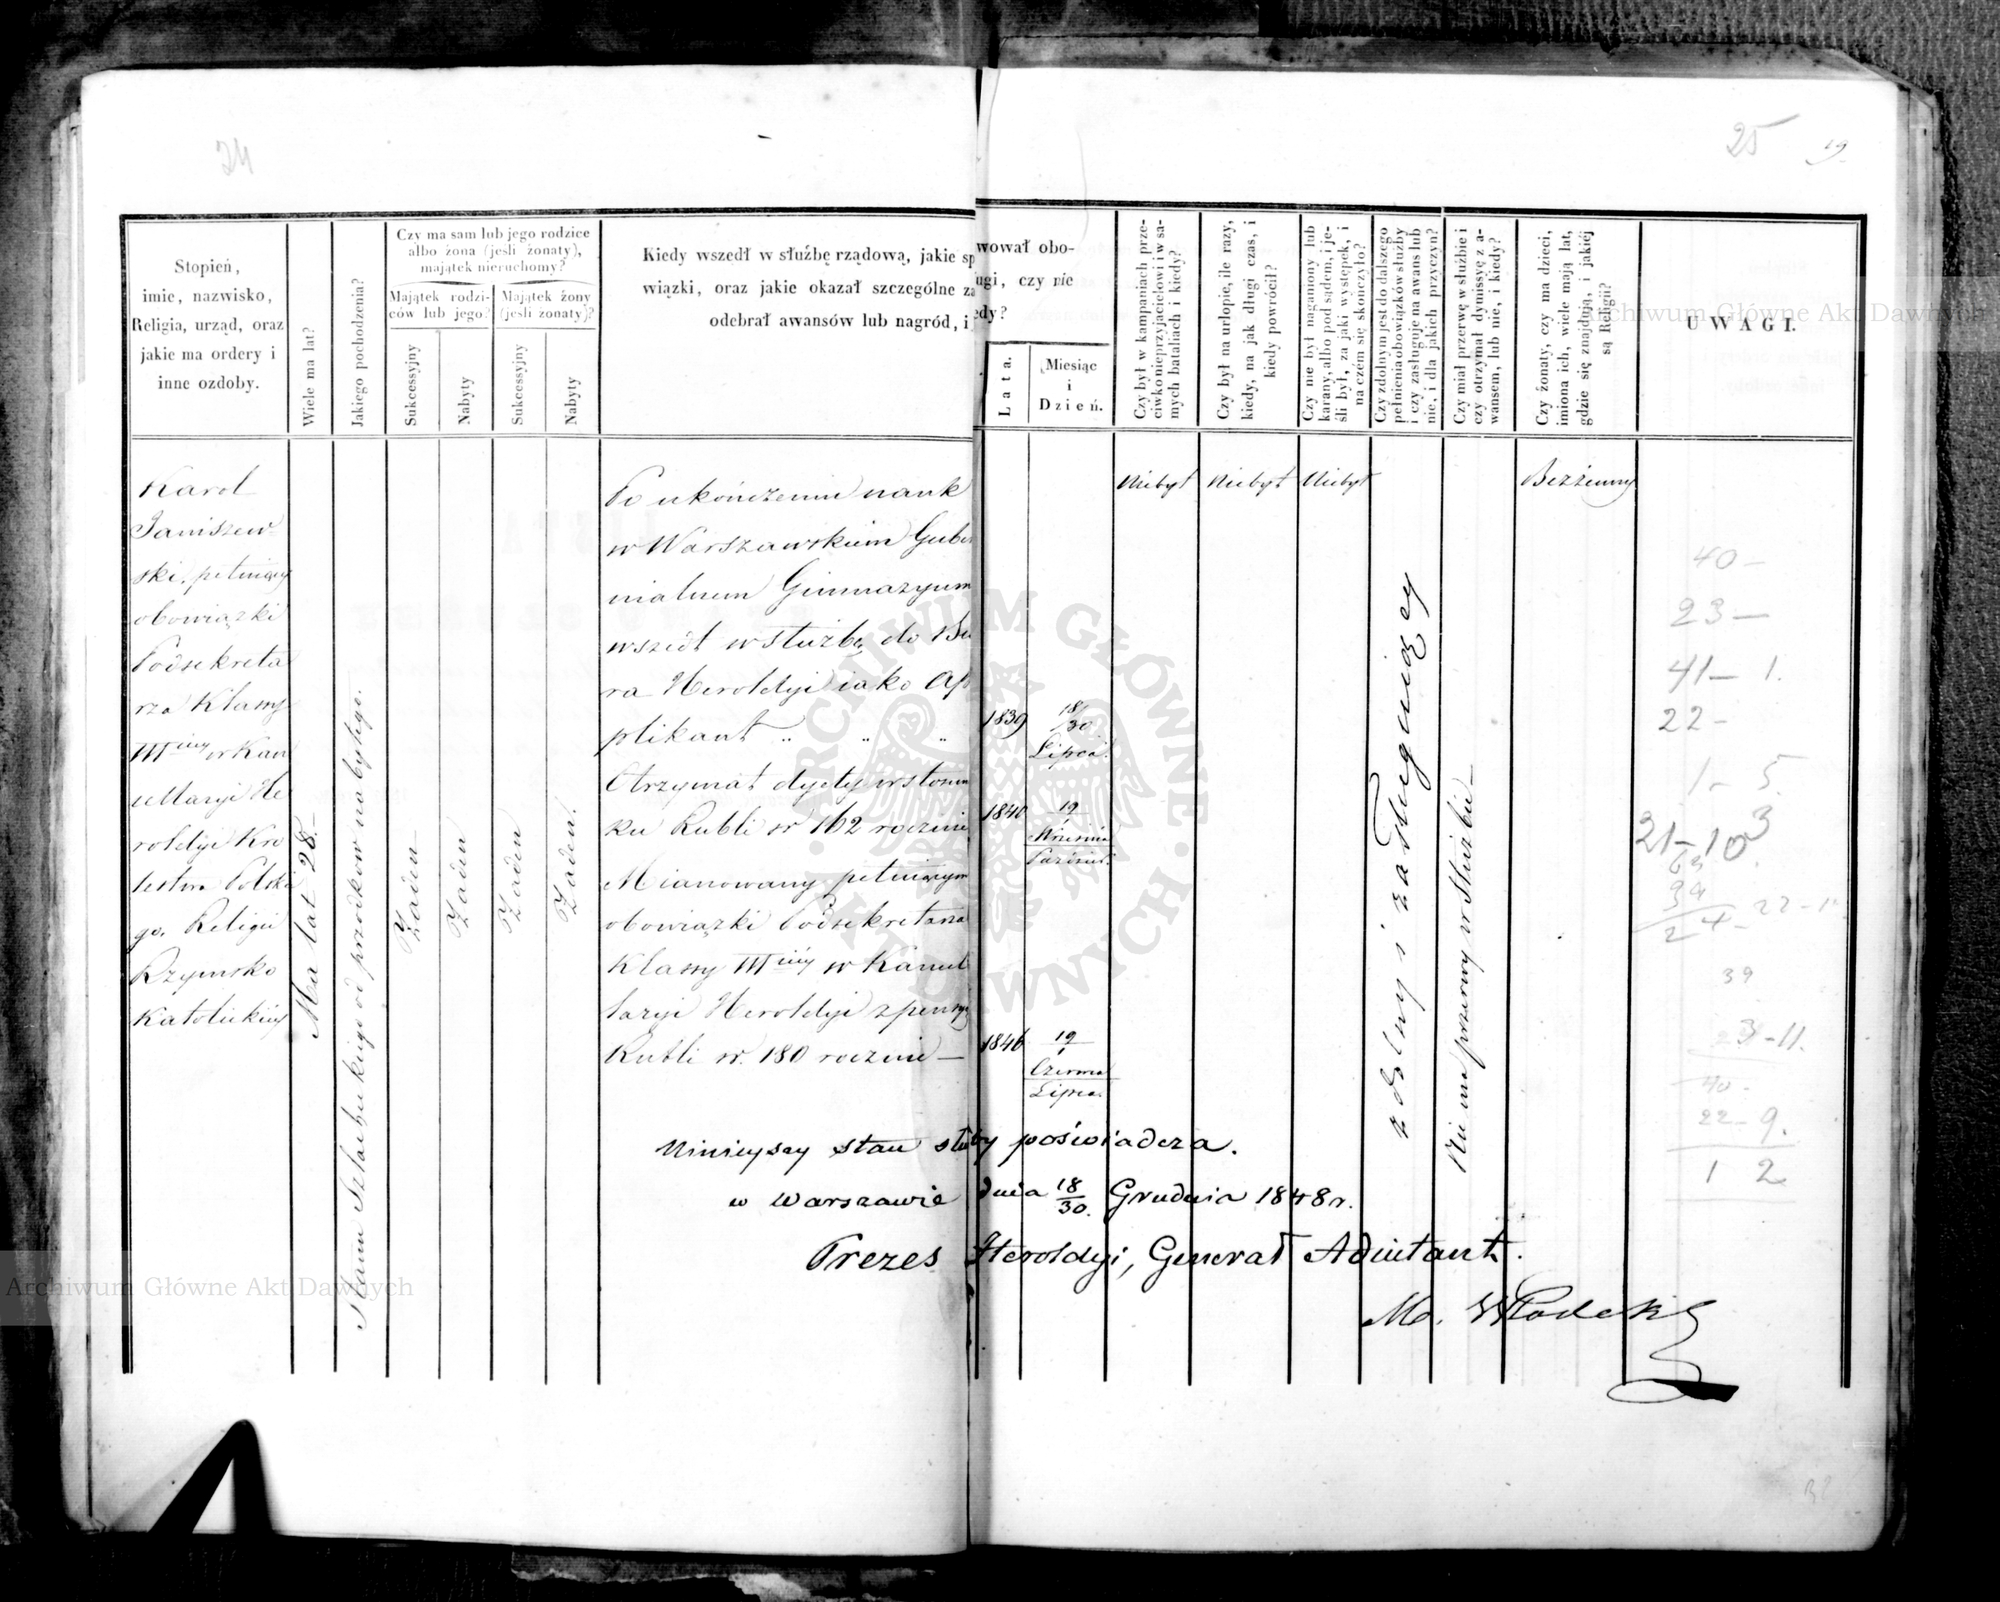 24
25
19.
Stopień,
imie, nazwisko,
Religia, urząd, oraz
jakie ma ordery i
inne ozdoby.
Wiele ma lat?
Jakiego pochodzenia?
Czy ma sam lub jego rodzice
albo żona (jeśli żonaty),
majątek nieruchomy?
Majątek rodzi-
ców lub jego?
Majątek żony
(jeśli żonaty)?
Sukcessyjny
Nabyty
Sukcessyjny
Nabyty
Kiedy wszedł w służbę rządową, jakie sp
wiązki, oraz jakie okazał szczególne za
odebrał awansów lub nagród, i
wował obo-
ugi, czy nie
edy?
Lata.
Miesiąc
i
Dzień.
Czy był w kampaniach prze-
ciwko nieprzyjacielowi i w sa-
mych bataliach i kiedy?
Czy był na urlopie, ile razy,
kiedy, na jak długi czas, i
kiedy powrócił?
Czy nie był naganiony lub
karany, albo pod sądem, i je-
śli był, za jaki występek, i
na czém się skończyło?
Czy zdolnym jest do dalszego
pełnienia obowiązków służby
i czy zasługuje na awans lub
nie, i dla jakich przyczyn?
Czy miał przerwę w służbie i
czy otrzymał dymissyę z a-
wansem, lub nie, i kiedy?
Czy żonaty, czy ma dzieci,
imiona ich, wiele mają lat,
gdzie się znajdują, i jakiéj
są Religii?
UWAGI.
Karol
Janiszew-
ski, pełniący
obowiązki
Podsekreta
rza Klassy
IIIciéy w Kan
cellaryi He
roldyi Kró
lestwa Polskie
go. Religii
Rzymsko
Katolickiéy
Ma lat 28.
Stanu Szlacheckiego od przodków nabytego.
Żaden
Żaden
Żaden
Żaden.
Po ukończeniu nauk
w Warszawskiem Guber
nialnem Gimnazyum
wszedł w służbę do Biu
ra Heroldyi jako Ap
plikant „ „ „
1839
18/30
Lipca.
Otrzymał dyety w stosun
ku Rubli sr 162 rocznie
1840
19/1
Września
Paździer.
Mianowany pełniącym
obowiązki Podsekretarza
Klassy IIIciéy w Kancel
laryi Heroldyi z pensyą
Rubli sr. 180 rocznie —
1846
19/1
Czerwca
Lipca.
Niebył
Niebył
Niebył
zdolny i zasługujący
Nie ma przerwy w służbie —
Bezżenny
Ninieyszy stan służby poświadcza.
w Warszawie dnia 18/30. Grudnia 1848 r.
Prezes Heroldyi, Generał Adiutant.
40 —
23 —
41 — 1.
22 —
1 — 5.
21 — 10
3
24 — 22 — 1
39
3 — 11.
40 —
22 — 9.
1 2
Archiwum Główne Akt Dawnych
Archiwum Główne Akt Dawnych
ARCHIWUM GŁÓWNE
AKT DAWNYCH